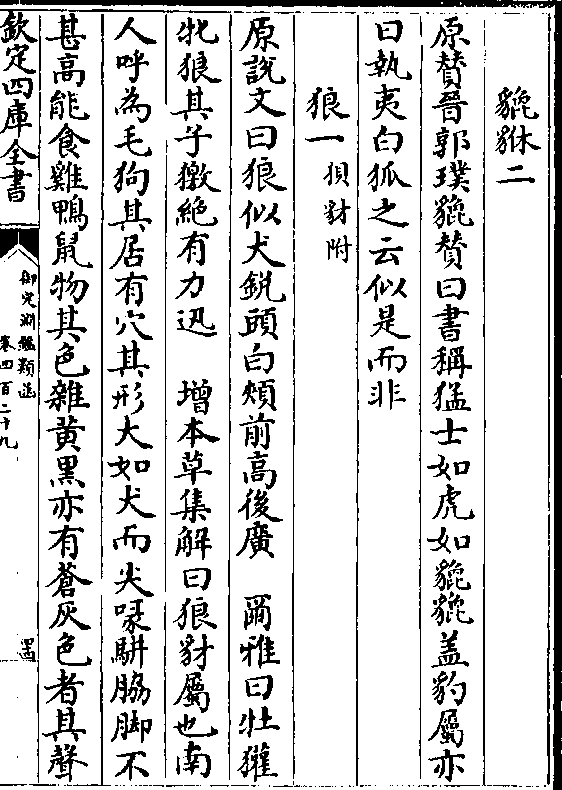 貔貅二
原贊晉郭璞貔贊曰書稱猛士如虎如貔貔盖豹屬亦
曰執夷白狐之云似是而非
狼一 狽豺附
原說文曰狼似犬銳頭白頰前高後廣 爾雅曰牡獾
牝狼其子獥絶有力迅 增本草集解曰狼豺屬也南
人呼為毛狗其居有穴其形大如犬而尖喙駢脇脚不
甚高能食雞鴨鼠物其色雜黄黑亦有蒼灰色者其聲
欽定四庫全書
御定淵鑑類函
卷四百二十九